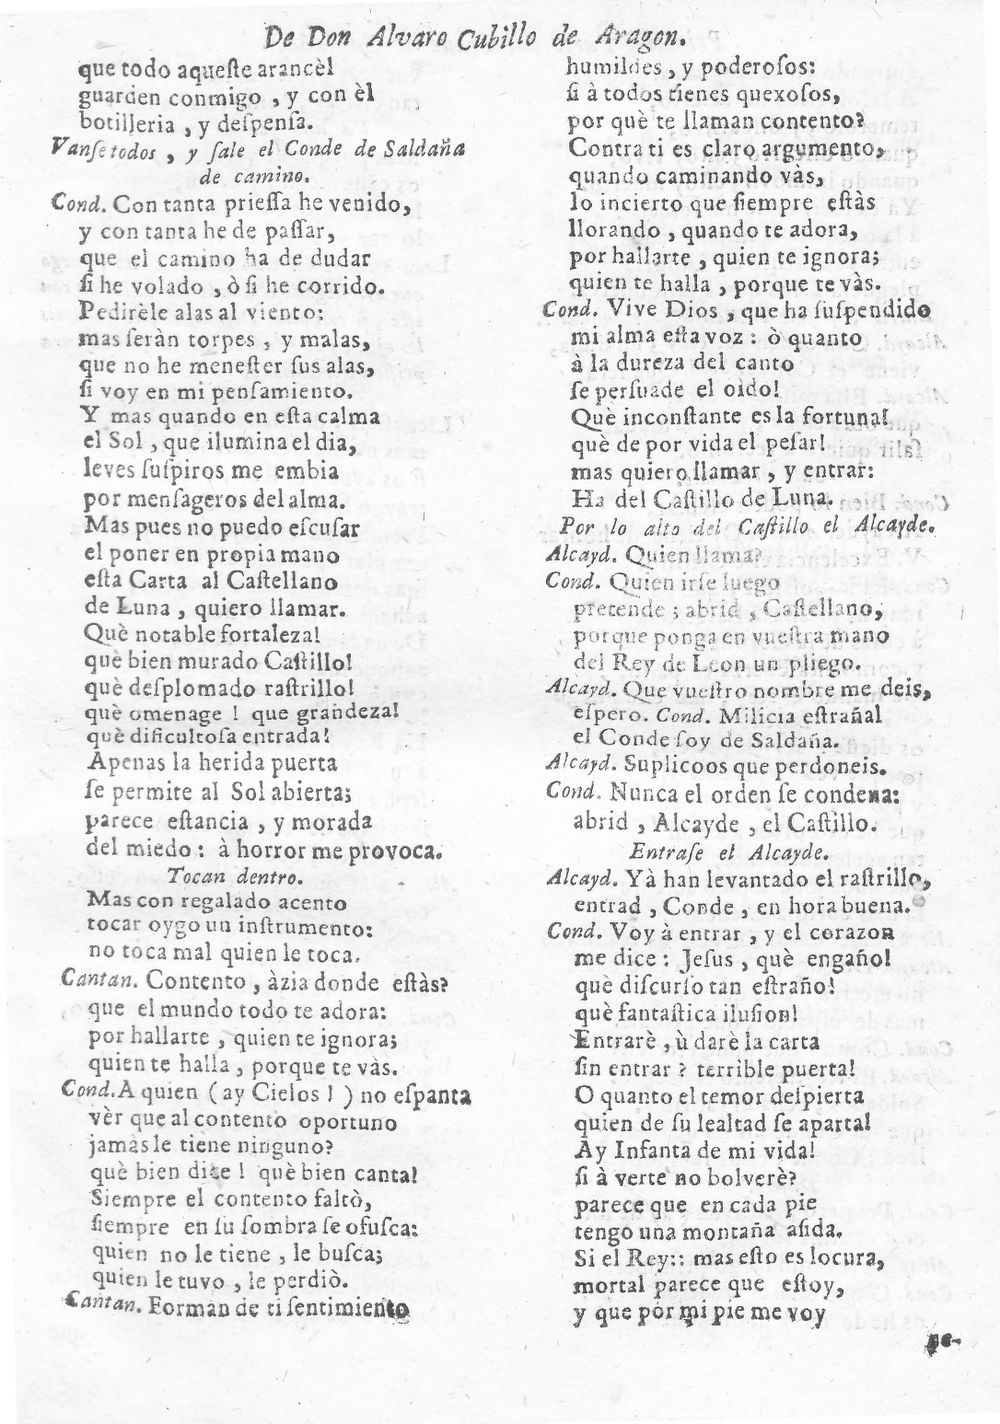 De Don Alvaro Cubillo de Aragon.
que todo aqueſte arancèl
guarden conmigo , y con èl
botilleria , y deſpenſa.
Vanſe todos , y ſale el Conde de Saldaña
de camino.
Cond. Con tanta prieſſa he venido,
y con tanta he de paſſar,
que el camino ha de dudar
ſi he volado , ò ſi he corrido.
Pedirèle alas al viento:
mas ſeràn torpes , y malas,
que no he meneſter ſus alas,
ſi voy en mi penſamiento.
Y mas quando en eſta calma
el Sol , que ilumina el dia,
leves ſuſpiros me embia
por menſageros del alma.
Mas pues no puedo eſcuſar
el poner en propia mano
eſta Carta al Caſtellano
de Luna , quiero llamar.
Què notable fortaleza!
què bien murado Caſtillo!
què deſplomado raſtrillo!
què omenage ! que grandeza!
què dificultoſa entrada!
Apenas la herida puerta
ſe permite al Sol abierta;
parece eſtancia , y morada
del miedo : à horror me provoca.
Tocan dentro.
Mas con regalado acento
tocar oygo un inſtrumento:
no toca mal quien le toca.
Cantan. Contento , àzia donde eſtàs?
que el mundo todo te adora:
por hallarte , quien te ignora;
quien te halla , porque te vàs.
Cond. A quien ( ay Cielos ! ) no eſpanta
vèr que al contento oportuno
jamàs le tiene ninguno?
què bien dice ! què bien canta!
Siempre el contento faltò,
ſiempre en ſu ſombra ſe ofuſca:
quien no le tiene , le buſca;
quien le tuvo , le perdiò.
Cantan. Forman de ti ſentimiento
humildes , y poderoſos:
ſi à todos tienes quexoſos,
por què te llaman contento?
Contra ti es claro argumento,
quando caminando vàs,
lo incierto que ſiempre eſtàs
llorando , quando te adora,
por hallarte , quien te ignora;
quien te halla , porque te vàs.
Cond. Vive Dios , que ha ſuſpendido
mi alma eſta voz : ò quanto
à la dureza del canto
ſe perſuade el oido!
Què inconſtante es la fortuna!
què de por vida el peſar!
mas quiero llamar , y entrar:
Ha del Caſtillo de Luna.
Por lo alto del Caſtillo el Alcayde.
Alcayd. Quien llama?
Cond. Quien irſe luego
pretende ; abrid , Caſtellano,
porque ponga en vueſtra mano
del Rey de Leon un pliego.
Alcayd. Que vueſtro nombre me deis,
eſpero. Cond. Milicia eſtraña!
el Conde ſoy de Saldaña.
Alcayd. Suplicoos que perdoneis.
Cond. Nunca el orden ſe condena:
abrid , Alcayde , el Caſtillo.
Entraſe el Alcayde.
Alcayd. Yà han levantado el raſtrillo,
entrad , Conde , en hora buena.
Cond. Voy à entrar , y el corazon
me dice : Jeſus , què engaño!
què diſcurſo tan eſtraño!
què fantaſtica iluſion!
Entrarè , ù darè la carta
ſin entrar ? terrible puerta!
O quanto el temor deſpierta
quien de ſu lealtad ſe aparta!
Ay Infanta de mi vida!
ſi à verte no bolverè?
parece que en cada pie
tengo una montaña aſida.
Si el Rey:: mas eſto es locura,
mortal parece que eſtoy,
y que por mi pie me voy